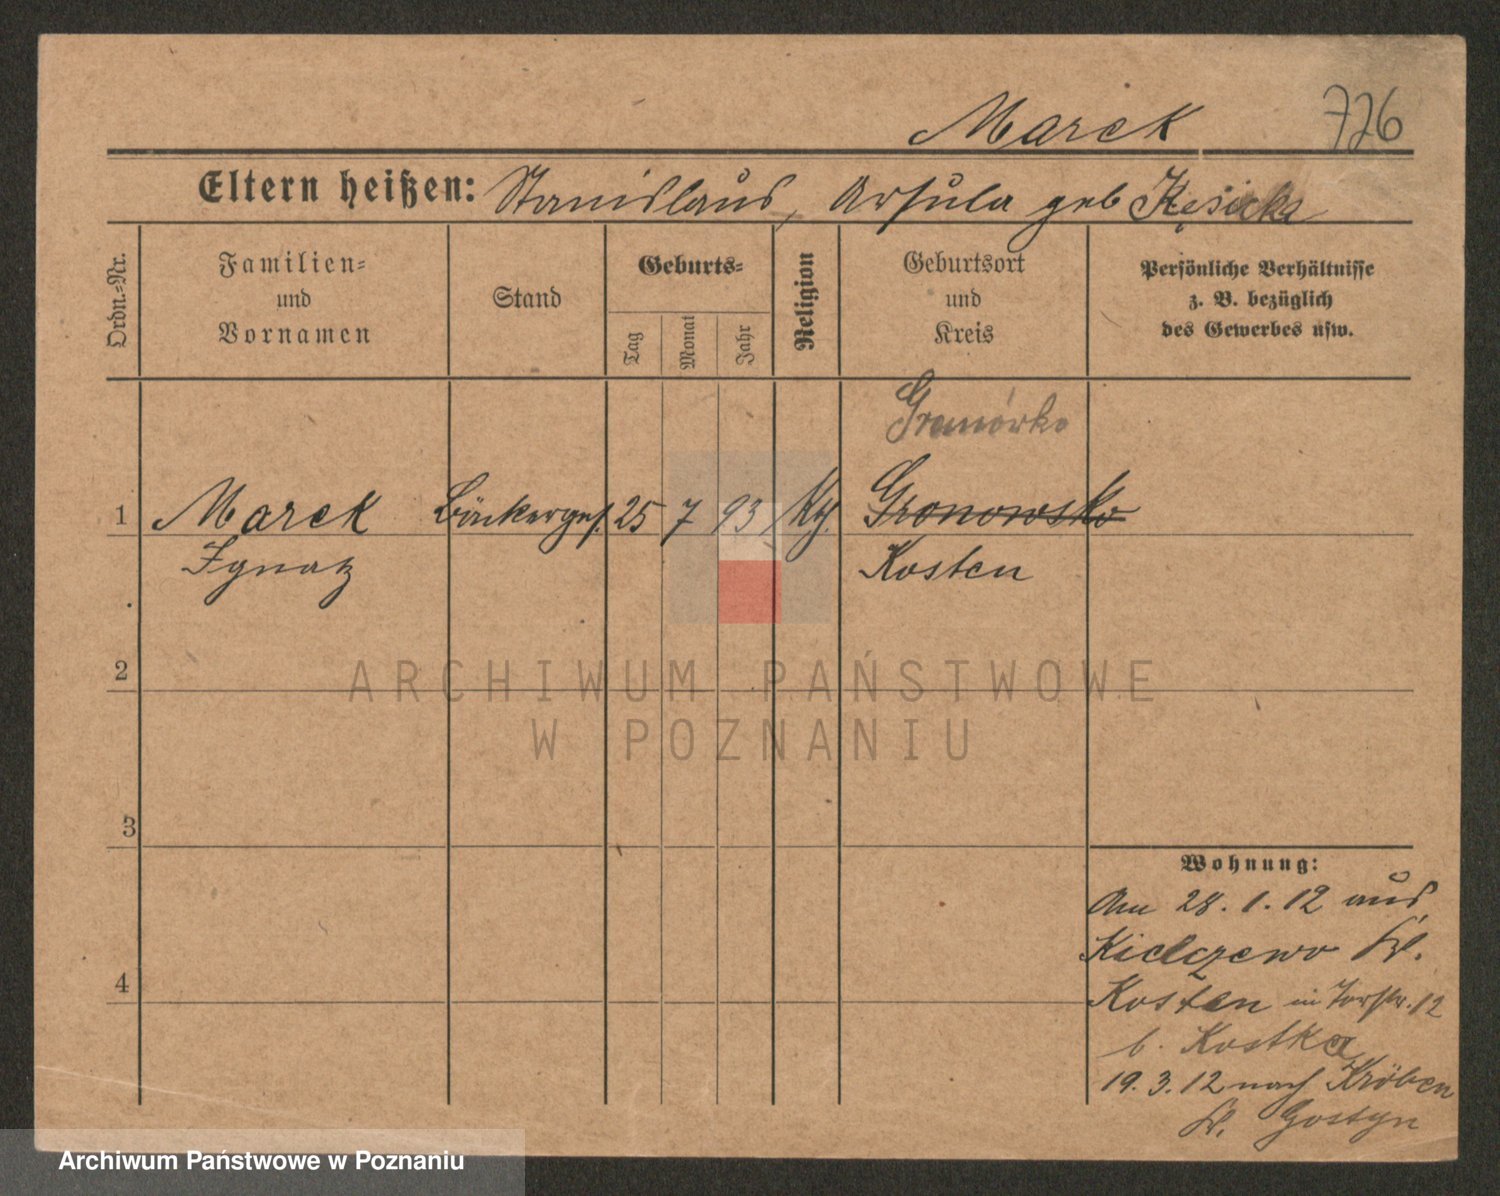 Marek 726
Eltern heißen: Stanislaus, Ursula geb Kęsicka
Ordn.-Nr.
Familien-
und
Vornamen
Stand
Geburts-
Tag Monat Jahr
Religion
Geburtsort
und
Kreis
Persönliche Verhältnisse
z. B. bezüglich
des Gewerbes usw.
Gronówko
1 Marek Bäckerges. 25 7 93 Gronowsko
Ignatz Kosten
2
ARCHIWUM PAŃSTWOWE
W POZNANIU
3
4
Wohnung:
Am 28. 1. 12 aus
Kielczewo Kr.
Kosten in Torstr. 12
b. Kostka
19. 3. 12 nach Kröben
Kr. Gostyn
Archiwum Państwowe w Poznaniu